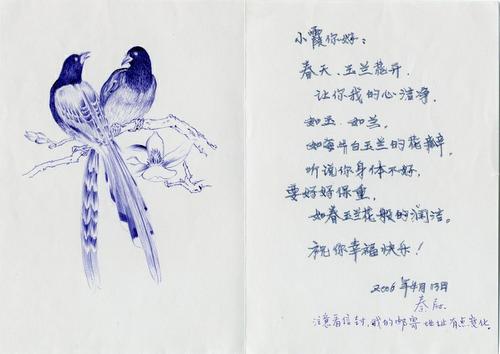 小霞你好：
春天、玉兰花开，
让你我的心洁净，
如玉、如兰，
如每片白玉兰的花瓣，
听说你身体不好，
要好好保重，
如春玉兰花般的润洁。
祝你幸福快乐！
2006年4月13日
注意看信封，我的邮寄地址有点变化。